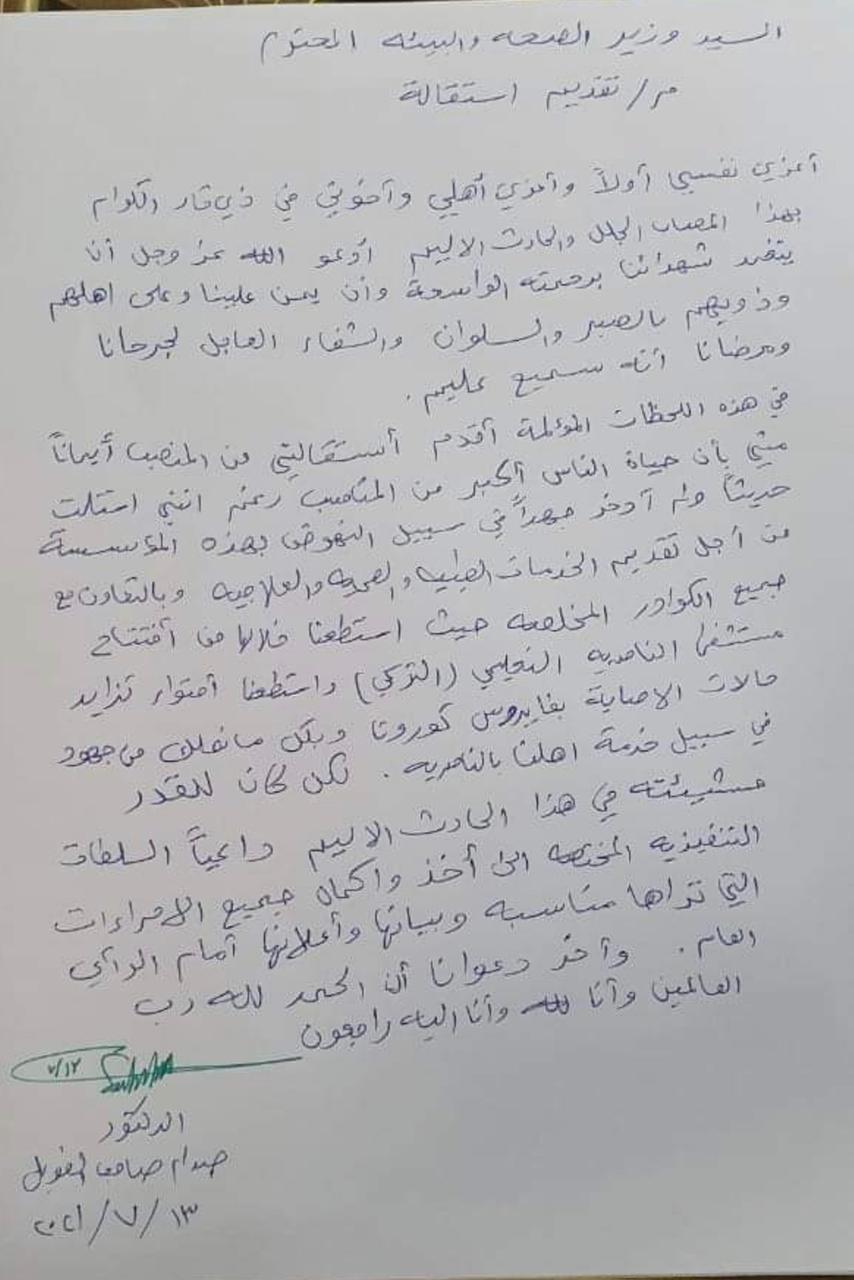 السيد وزير الصحه والبيئه المحترم
م/ تقديم استقالة
أعزي نفسي أولاً وأعزي أهلي وأخوتي في ذي قار الكرام
بهذا المصاب الجلل والحادث الاليم أدعو الله عز وجل أن
يتغمد شهدائنا برحمته الواسعة وأن يمن علينا وعلى اهلهم
وذويهم بالصبر والسلوان والشفاء العاجل لجرحانا
ومرضانا أنه سميع عليم .
في هذه اللحظات المؤلمة أقدم أستقالتي من المنصب أيماناً
مني بأن حياة الناس أكبر من المناصب رغم انني استلمت
حديثاً ولم أدخر جهداً في سبيل النهوض بهذه المؤسسة
من أجل تقديم الخدمات الطبيه والصحيه والعلاجيه وبالتعاون مع
جميع الكوادر المخلصه حيث استطعنا خلالها من أفتتاح
مستشفى الناصريه التعليمي (التركي) واستطعنا أحتواء تزايد
حالات الاصابة بفايروس كورونا وبكل مانملك من جهود
في سبيل خدمة اهلنا بالناصريه . لكن كان للقدر
مشيئته في هذا الحادث الاليم داعياً السلطات
التنفيذيه المختصه الى أخذ واكمال جميع الاجراءات
التي تراها مناسبه وبيانها وأعلانها أمام الرأي
العام . وأخر دعوانا أن الحمد لله رب
العالمين وأنا لله وأنا اليه راجعون
٧/١٢
الدكتور
صدام صاحب الطويل
٢٠٢١/٧/١٣